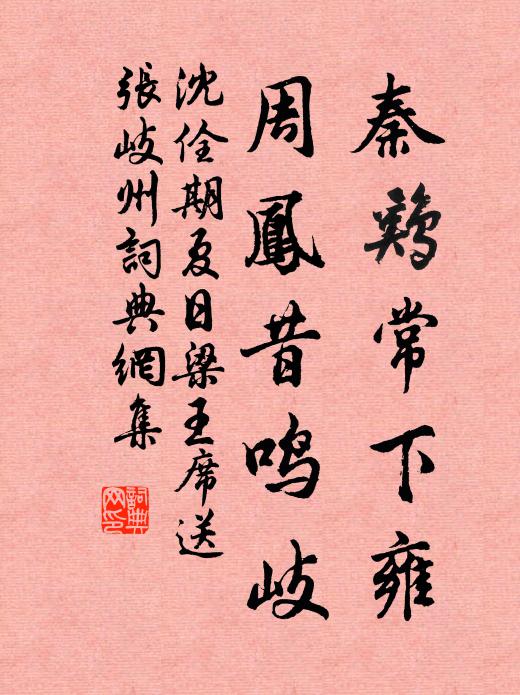 秦鷄常下雍
周鳳昔鳴岐
沈佺期夏日梁王席送
張岐州詞典網集
詞典
网印